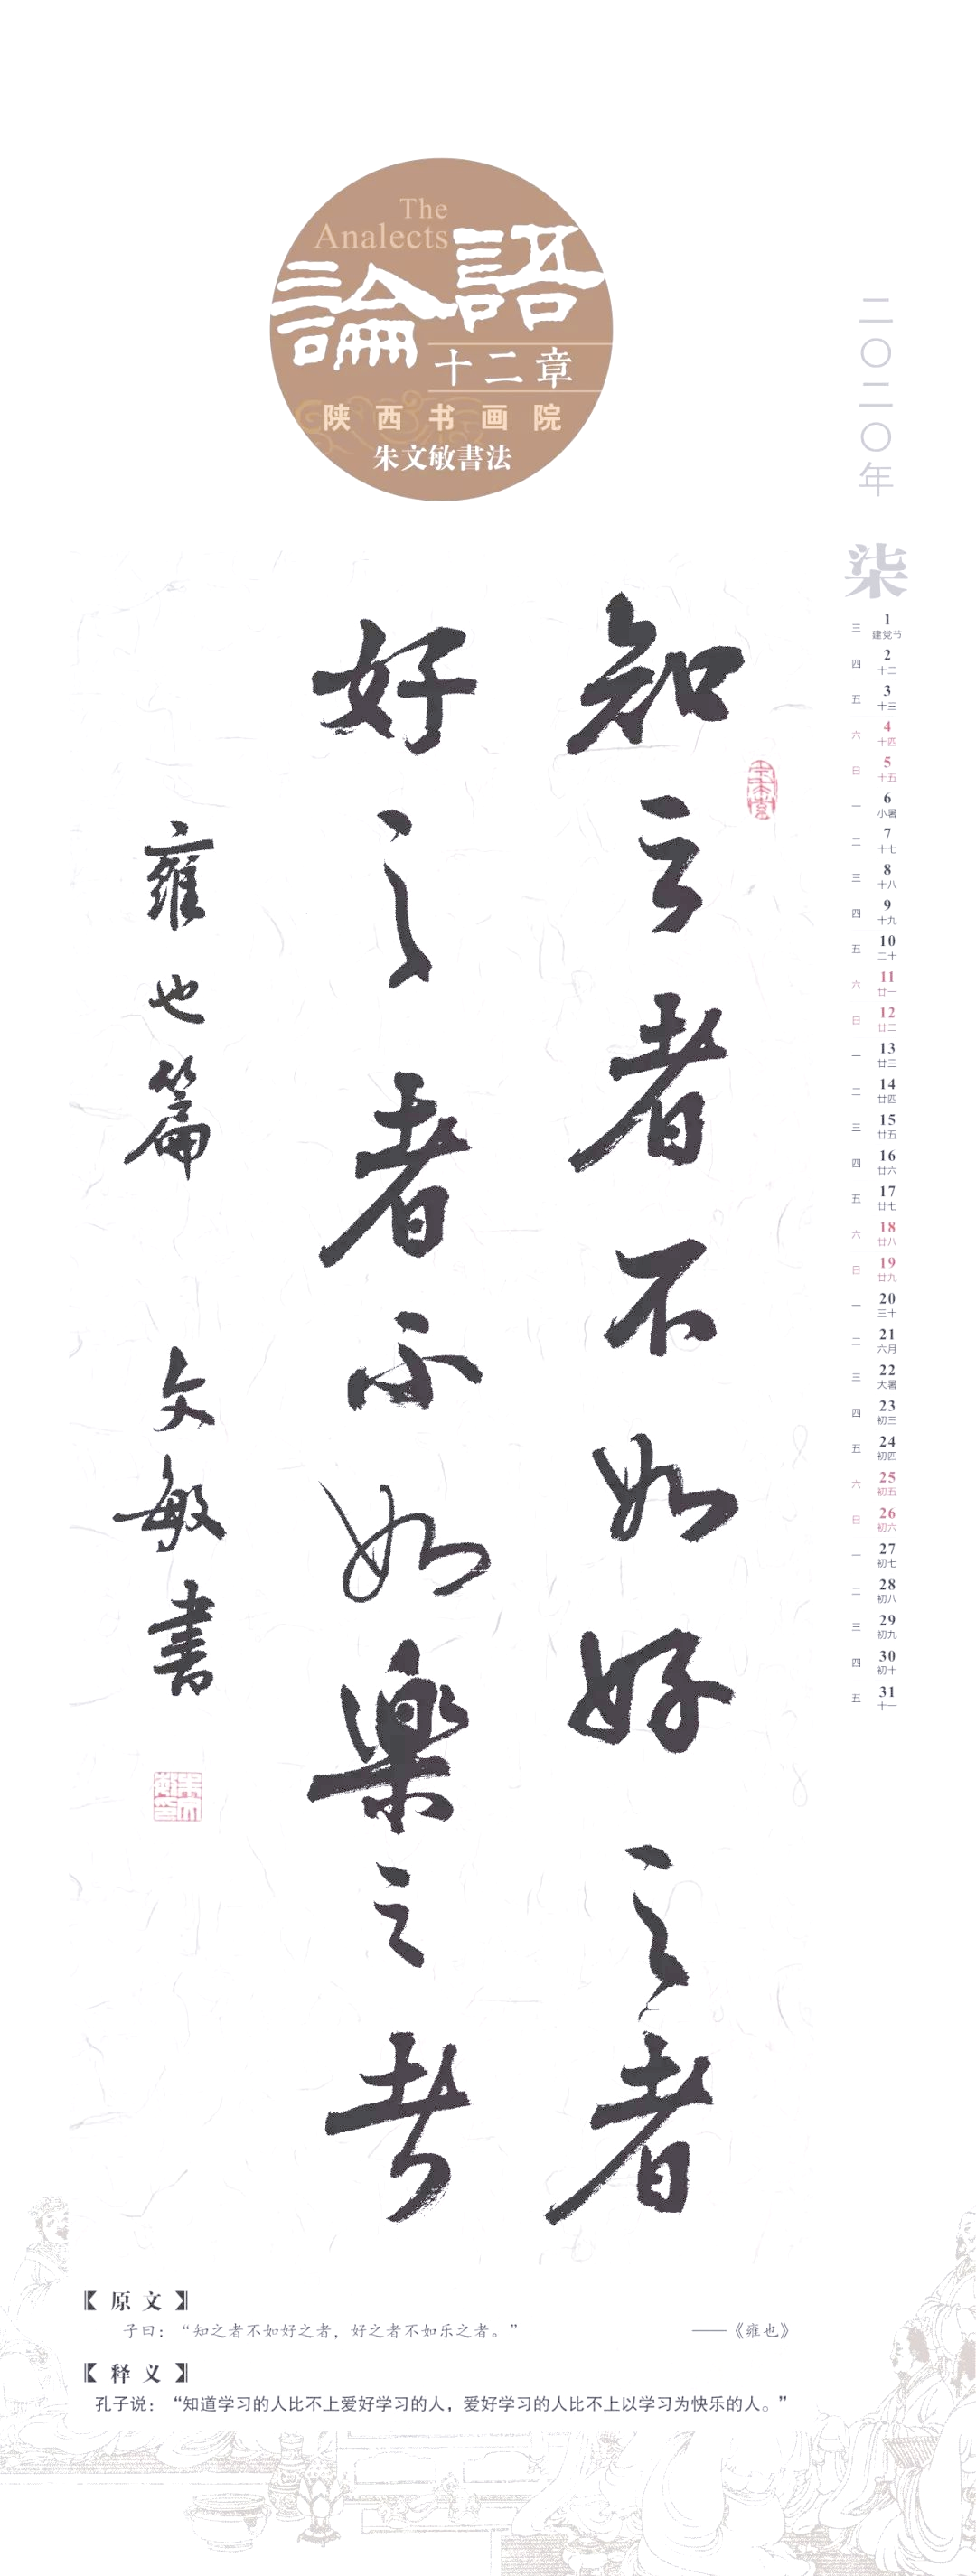 The
Analects
論語
十二章
陕西书画院
朱文敏書法
二〇二〇年
柒
三 1 建党节
四 2 十二
五 3 十三
六 4 十四
日 5 十五
一 6 小暑
二 7 十七
三 8 十八
四 9 十九
五 10 二十
六 11 廿一
日 12 廿二
一 13 廿三
二 14 廿四
三 15 廿五
四 16 廿六
五 17 廿七
六 18 廿八
日 19 廿九
一 20 三十
二 21 六月
三 22 大暑
四 23 初三
五 24 初四
六 25 初五
日 26 初六
一 27 初七
二 28 初八
三 29 初九
四 30 初十
五 31 十一
知之者不如好之者
好之者不如樂之者
雍也篇 文敏書
【原文】
子曰：“知之者不如好之者，好之者不如乐之者。” ——《雍也》
【释义】
孔子说：“知道学习的人比不上爱好学习的人，爱好学习的人比不上以学习为快乐的人。”